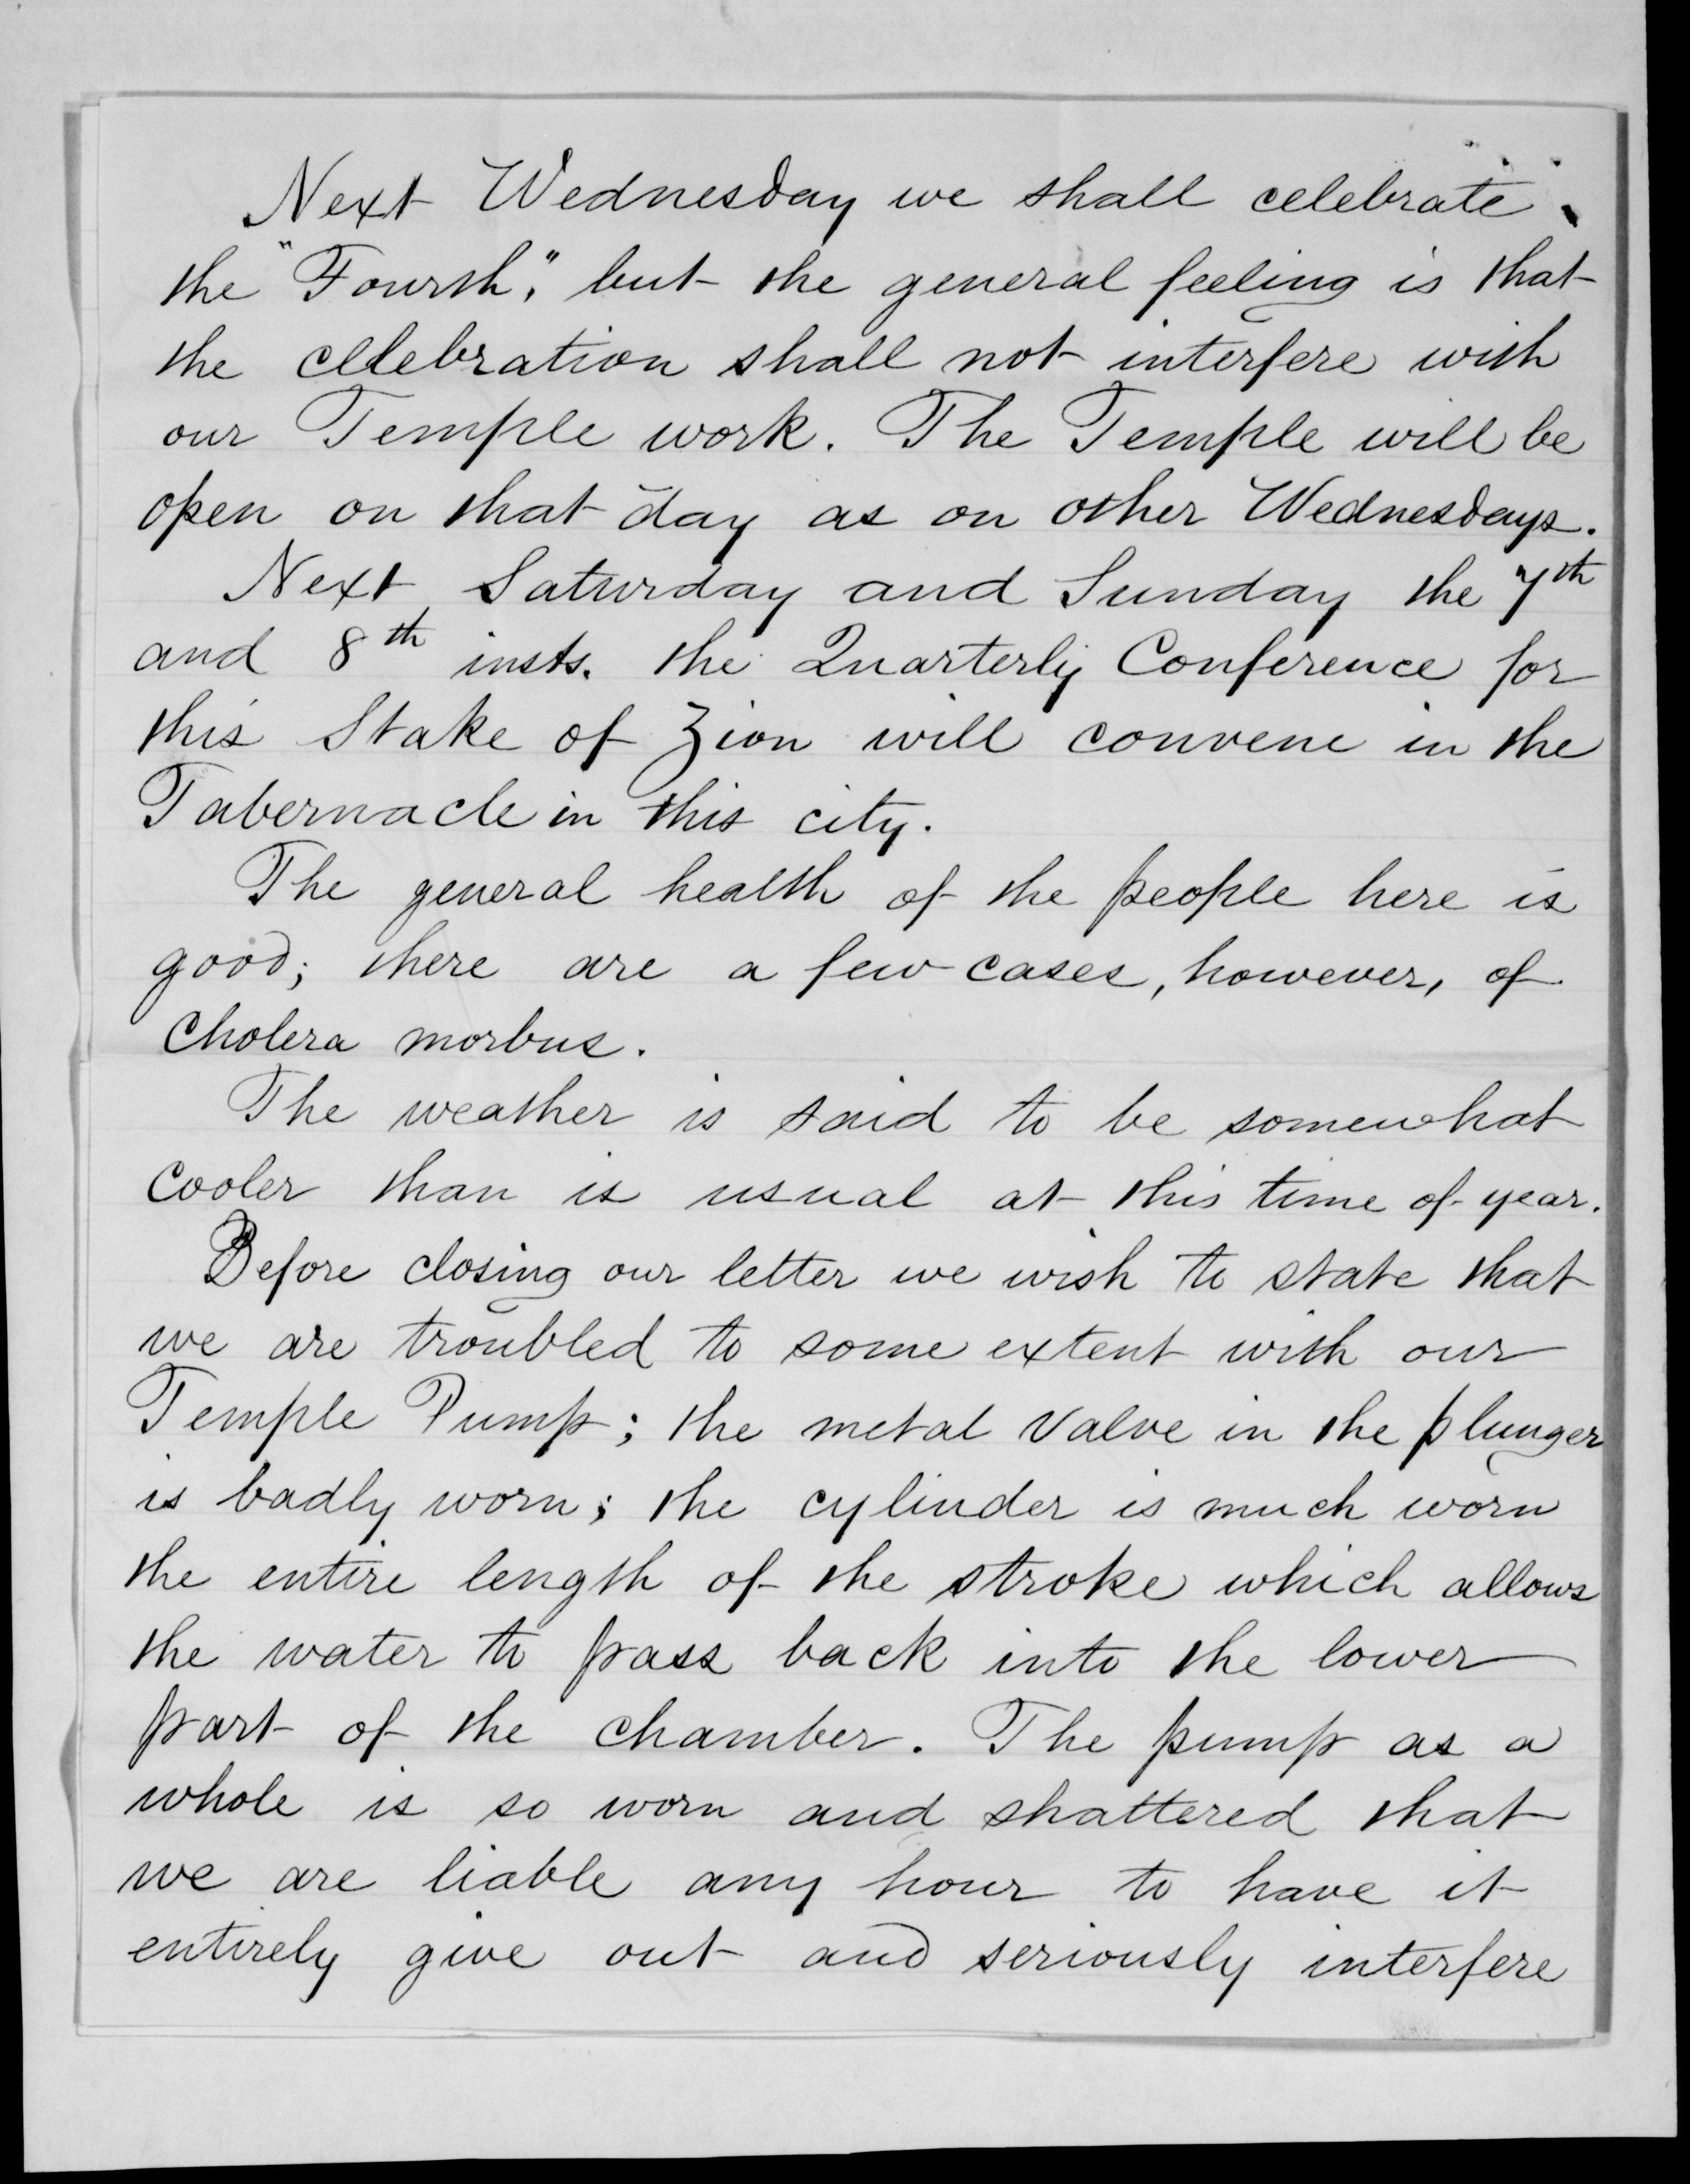 Next Wednesday we shall celebrate
the "Fourth", but the general feeling is that
the celebration shall not interfere with
our Temple work. The Temple will be
open on that day as on other Wednesdays.
Next Saturday and Sunday the 7th
and 8th insts. the Quarterly Conference for
this Stake of Zion will convene in the
Tabernacle in this city.
The general health of the people here is
good; there are a few cases, however, of
Cholera morbus.
The weather is said to be somewhat
cooler than is usual at this time of year.
Before closing our letter we wish to state that
we are troubled to some extent with our
Temple Pump; the metal valve in the plunger
is badly worn; the cylinder is much worn
the entire length of the stroke which allows
the water to pass back into the lower
part of the chamber. The pump as a
whole is so worn and shattered that
we are liable any hour to have it
entirely give out and seriously interfere